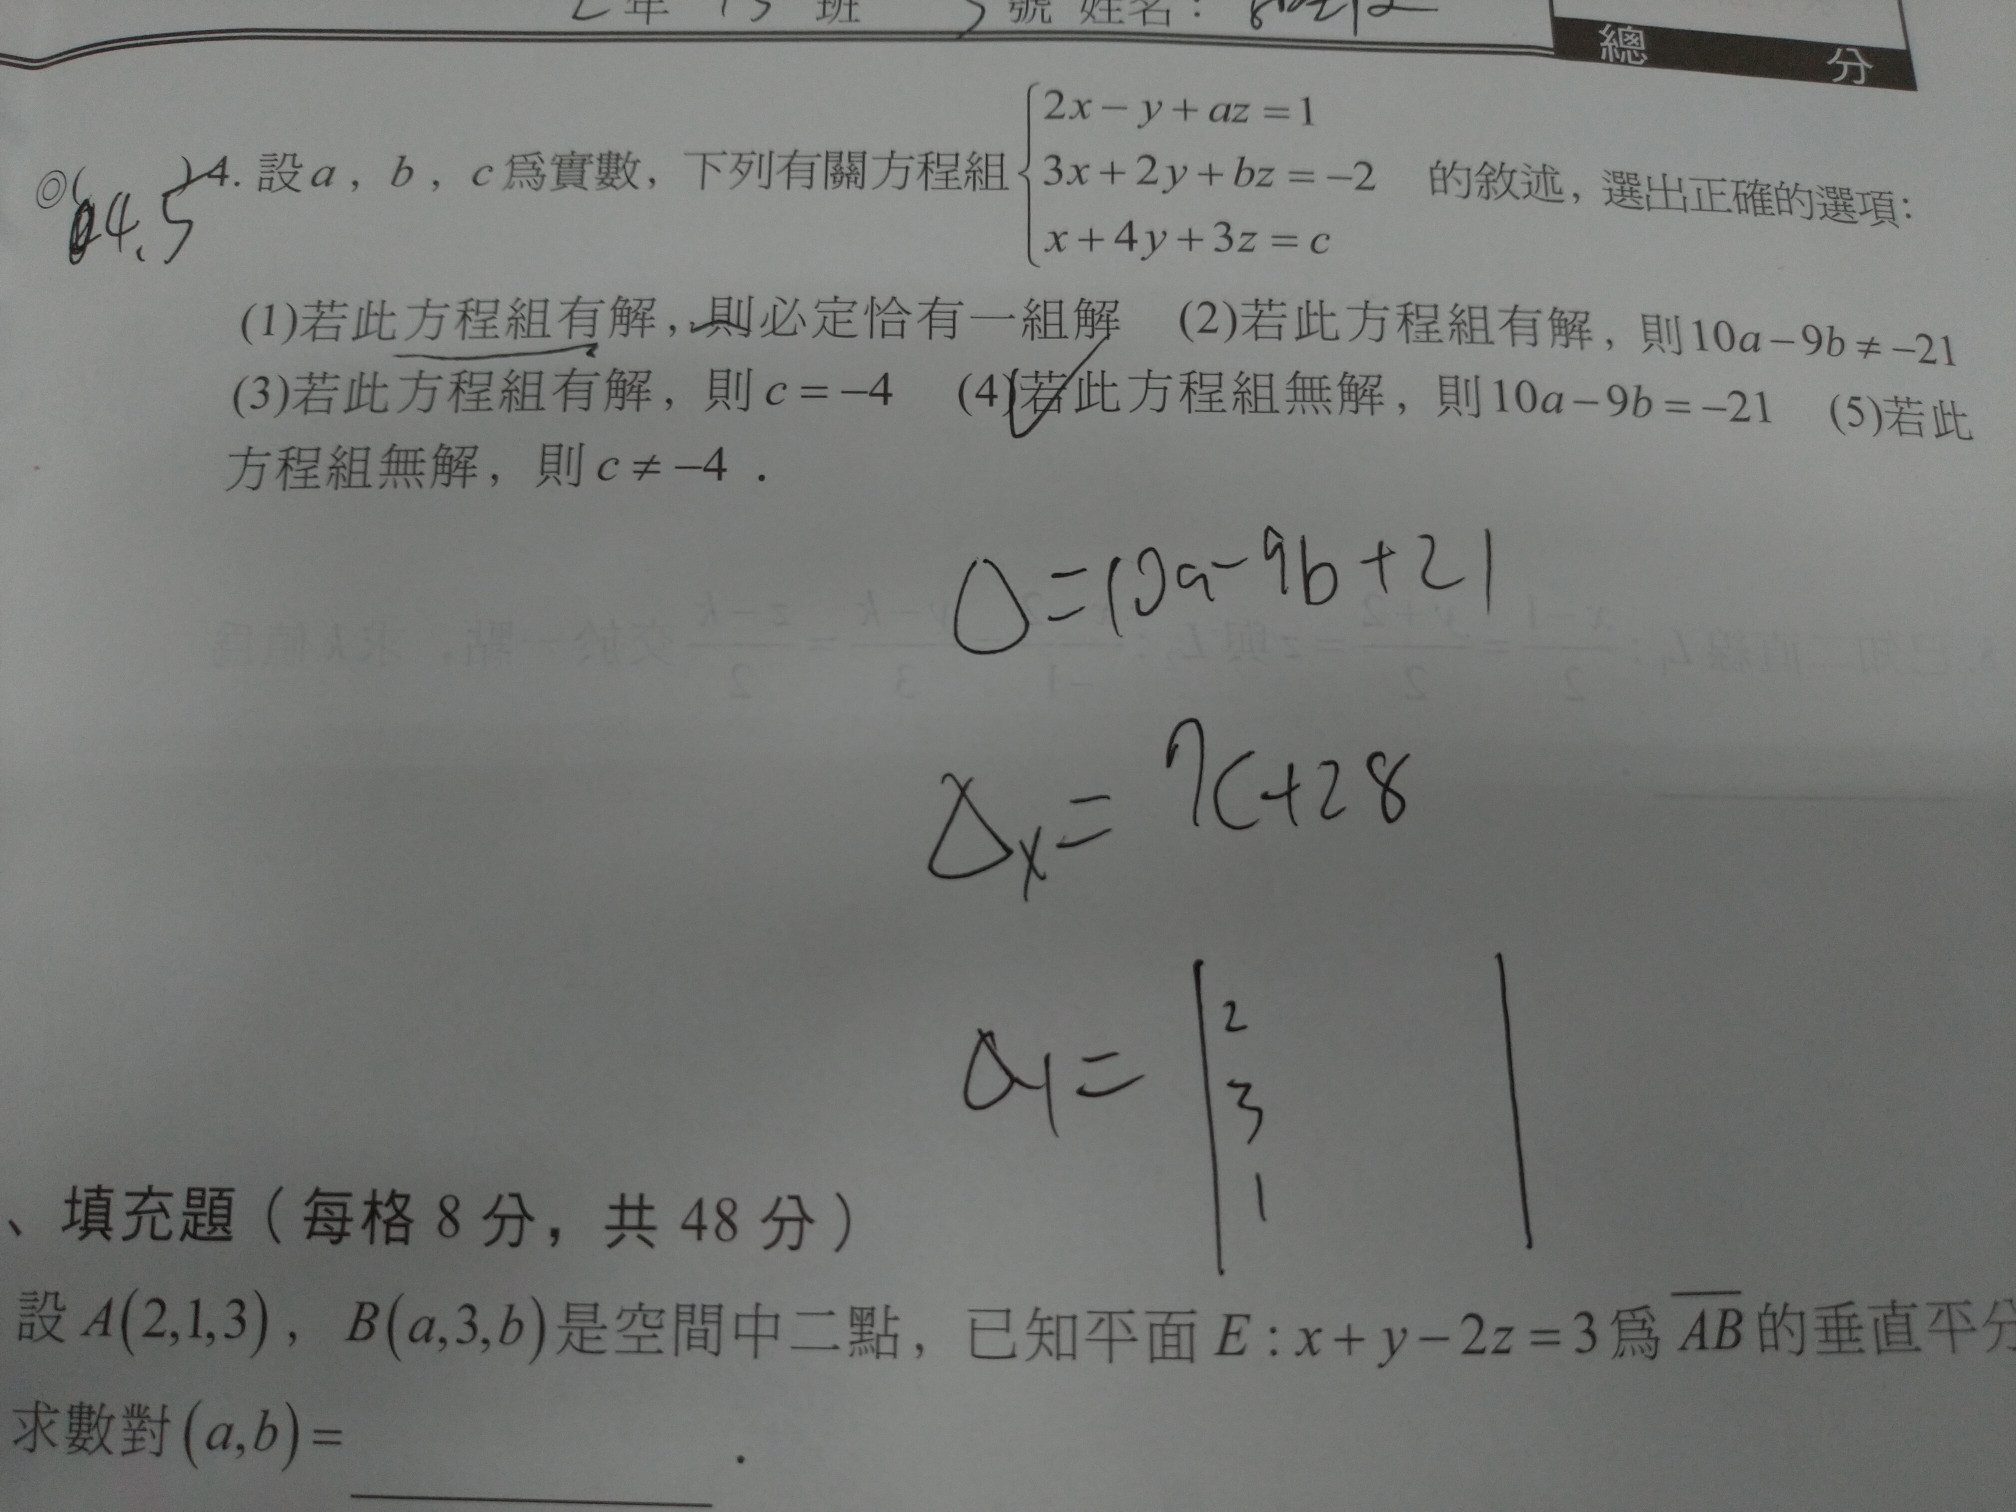 2年 13 班 5號 姓名：
總 分
◎( 4.5 )4. 設a，b，c爲實數，下列有關方程組 { 2x－y＋az＝1
3x＋2y＋bz＝－2 的敘述，選出正確的選項：
x＋4y＋3z＝c
(1)若此方程組有解，則必定恰有一組解 (2)若此方程組有解，則10a－9b≠－21
(3)若此方程組有解，則c＝－4 (4)若此方程組無解，則10a－9b＝－21 (5)若此
方程組無解，則c≠－4．
△=10a-9b+21
△x=7C+28
△y= | 2
3
1 |
、填充題（每格 8 分，共 48 分）
設A(2,1,3)，B(a,3,b)是空間中二點，已知平面E：x＋y－2z＝3爲AB的垂直平分
求數對(a,b)＝ ．